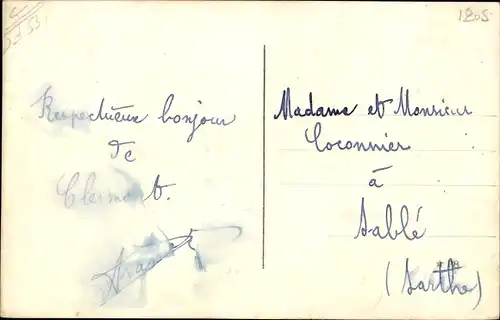 1805
Respectueux bonjour
de
Clermont.
Madame et Monsieur
Coconnier
à
Sablé
(Sarthe)